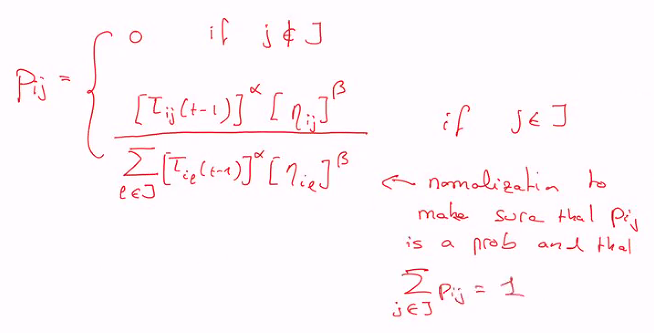 0 if j ∉ J
p_{ij} =
[τ_{ij}(t-1)]^α [η_{ij}]^β if j ∈ J
∑_{ℓ∈J} [τ_{iℓ}(t-1)]^α [η_{iℓ}]^β ← normalization to
make sure that p_{ij}
is a prob and that
∑_{j∈J} p_{ij} = 1